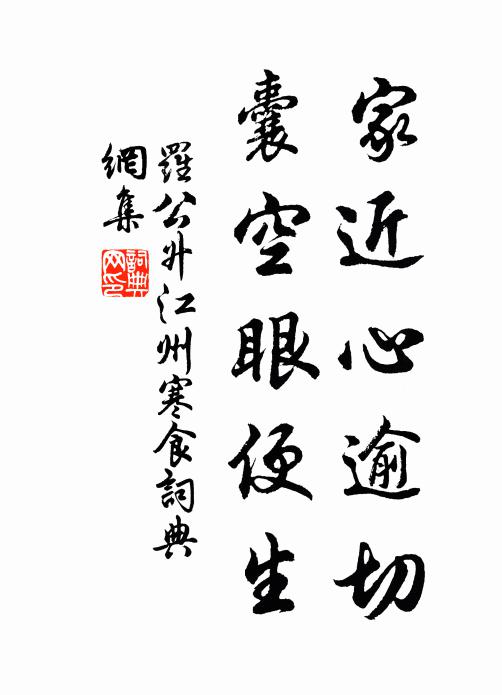 家近心逾切
囊空眼便生
羅公升江州寒食詞典
網集
詞典
网印